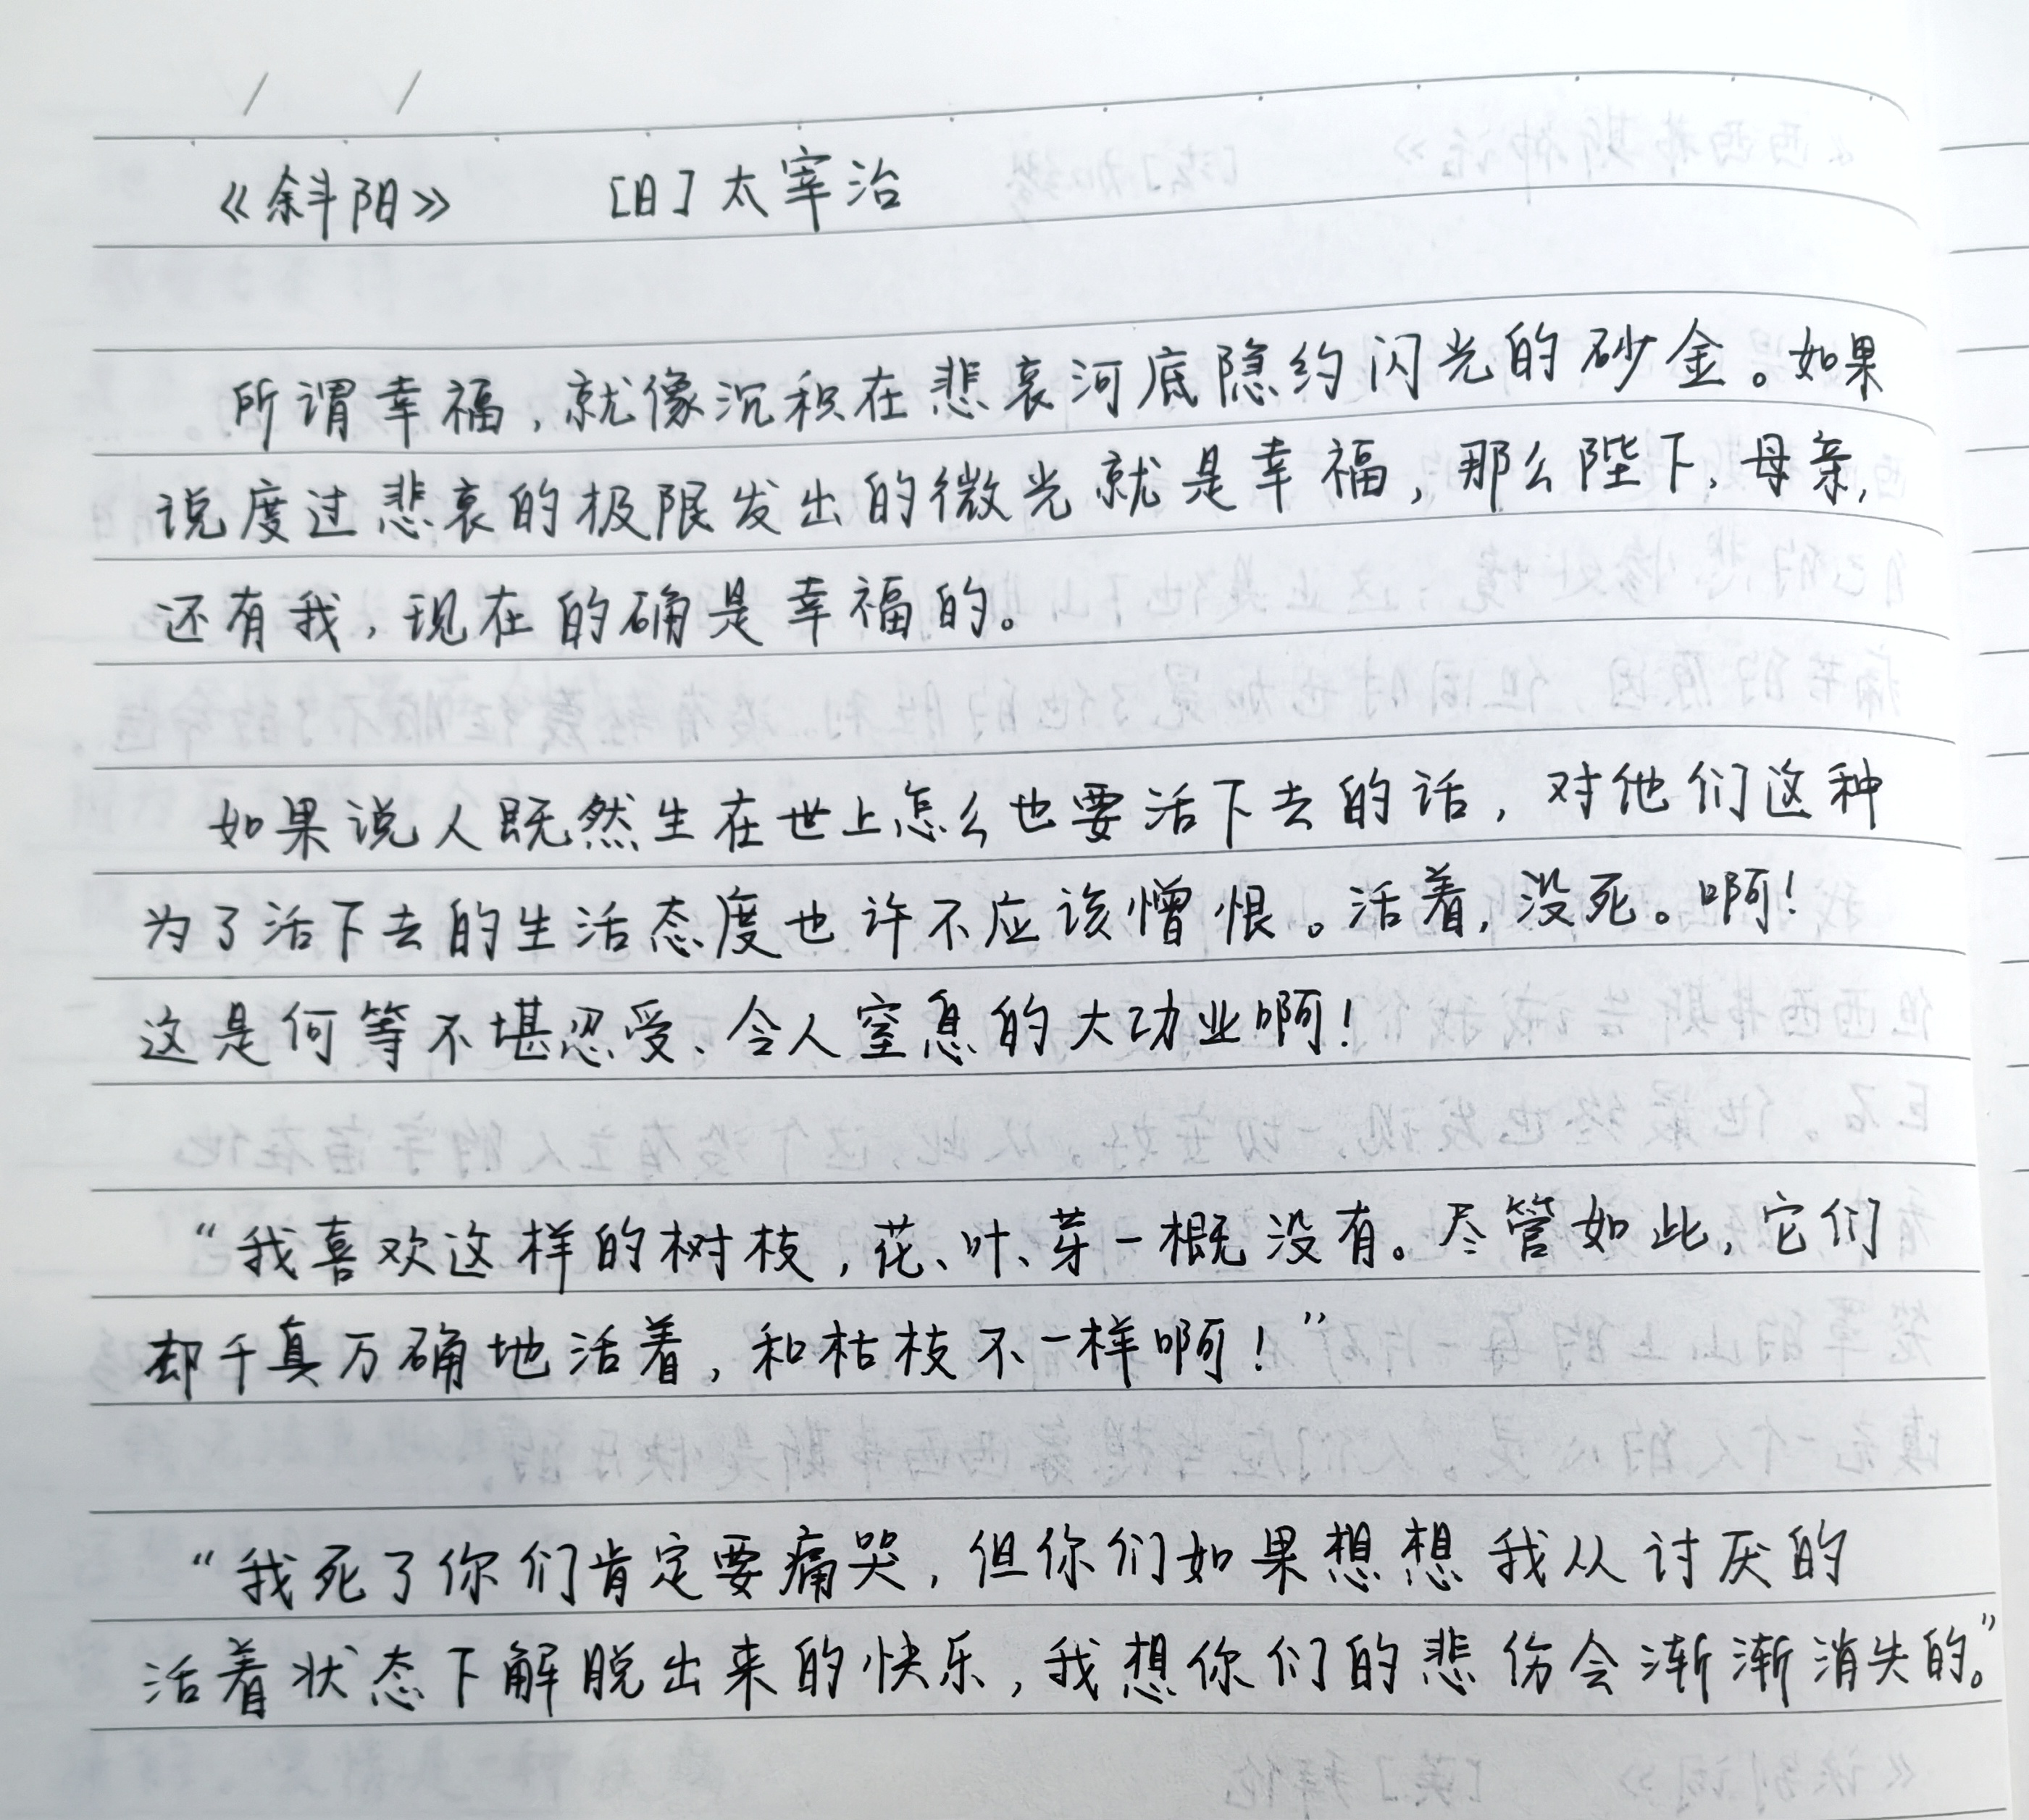 《斜阳》 [日]太宰治
所谓幸福,就像沉积在悲哀河底隐约闪光的砂金。如果
说度过悲哀的极限发出的微光就是幸福,那么陛下,母亲,
还有我,现在的确是幸福的。
如果说人既然生在世上怎么也要活下去的话,对他们这种
为了活下去的生活态度也许不应该憎恨。活着,没死。啊!
这是何等不堪忍受、令人窒息的大功业啊!
“我喜欢这样的树枝,花、叶、芽一概没有。尽管如此,它们
却千真万确地活着,和枯枝不一样啊!”
“我死了你们肯定要痛哭,但你们如果想想我从讨厌的
活着状态下解脱出来的快乐,我想你们的悲伤会渐渐消失的。”